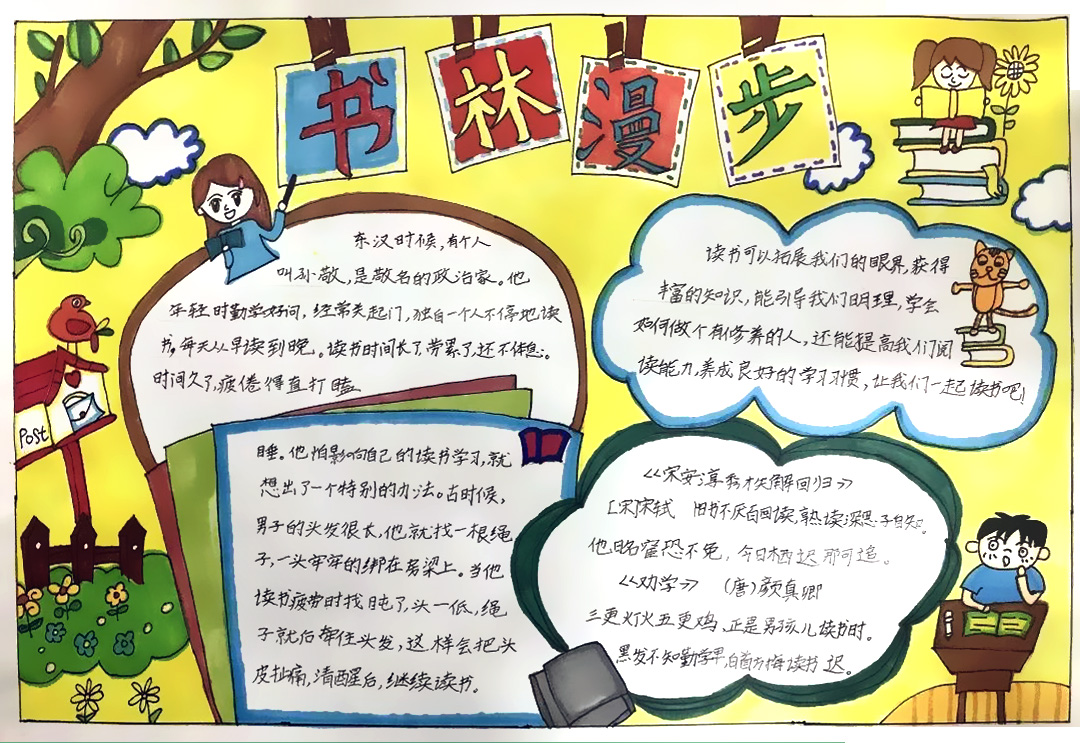 书林漫步
东汉时候，有个人
叫孙敬，是敬名的政治家。他
年轻时勤学好问，经常关起门，独自一个人不停地读
书。每天从早读到晚。读书时间长了，劳累了，还不休息。
时间久了，疲倦得直打瞌
睡。他怕影响自己的读书学习，就
想出了一个特别的办法。古时候，
男子的头发很长，他就找一根绳
子，一头牢牢的绑在房梁上。当他
读书疲劳时找盹了，头一低，绳
子就后牵住头发，这样会把头
皮扯痛，清醒后，继续读书。
读书可以拓展我们的眼界，获得
丰富的知识，能引导我们明理，学会
如何做个有修养的人，还能提高我们阅
读能力，养成良好的学习习惯，让我们一起读书吧！
<<宋安淳秀才失解回归>>
[宋]宋轼 旧书不厌百回读，熟读深思子自知。
他日名宦恐不免，今日栖迟那可追。
<<劝学>> （唐）颜真卿
三更灯火五更鸡，正是男孩儿读书时。
黑发不知勤学早，白首方悔读书迟。
Post